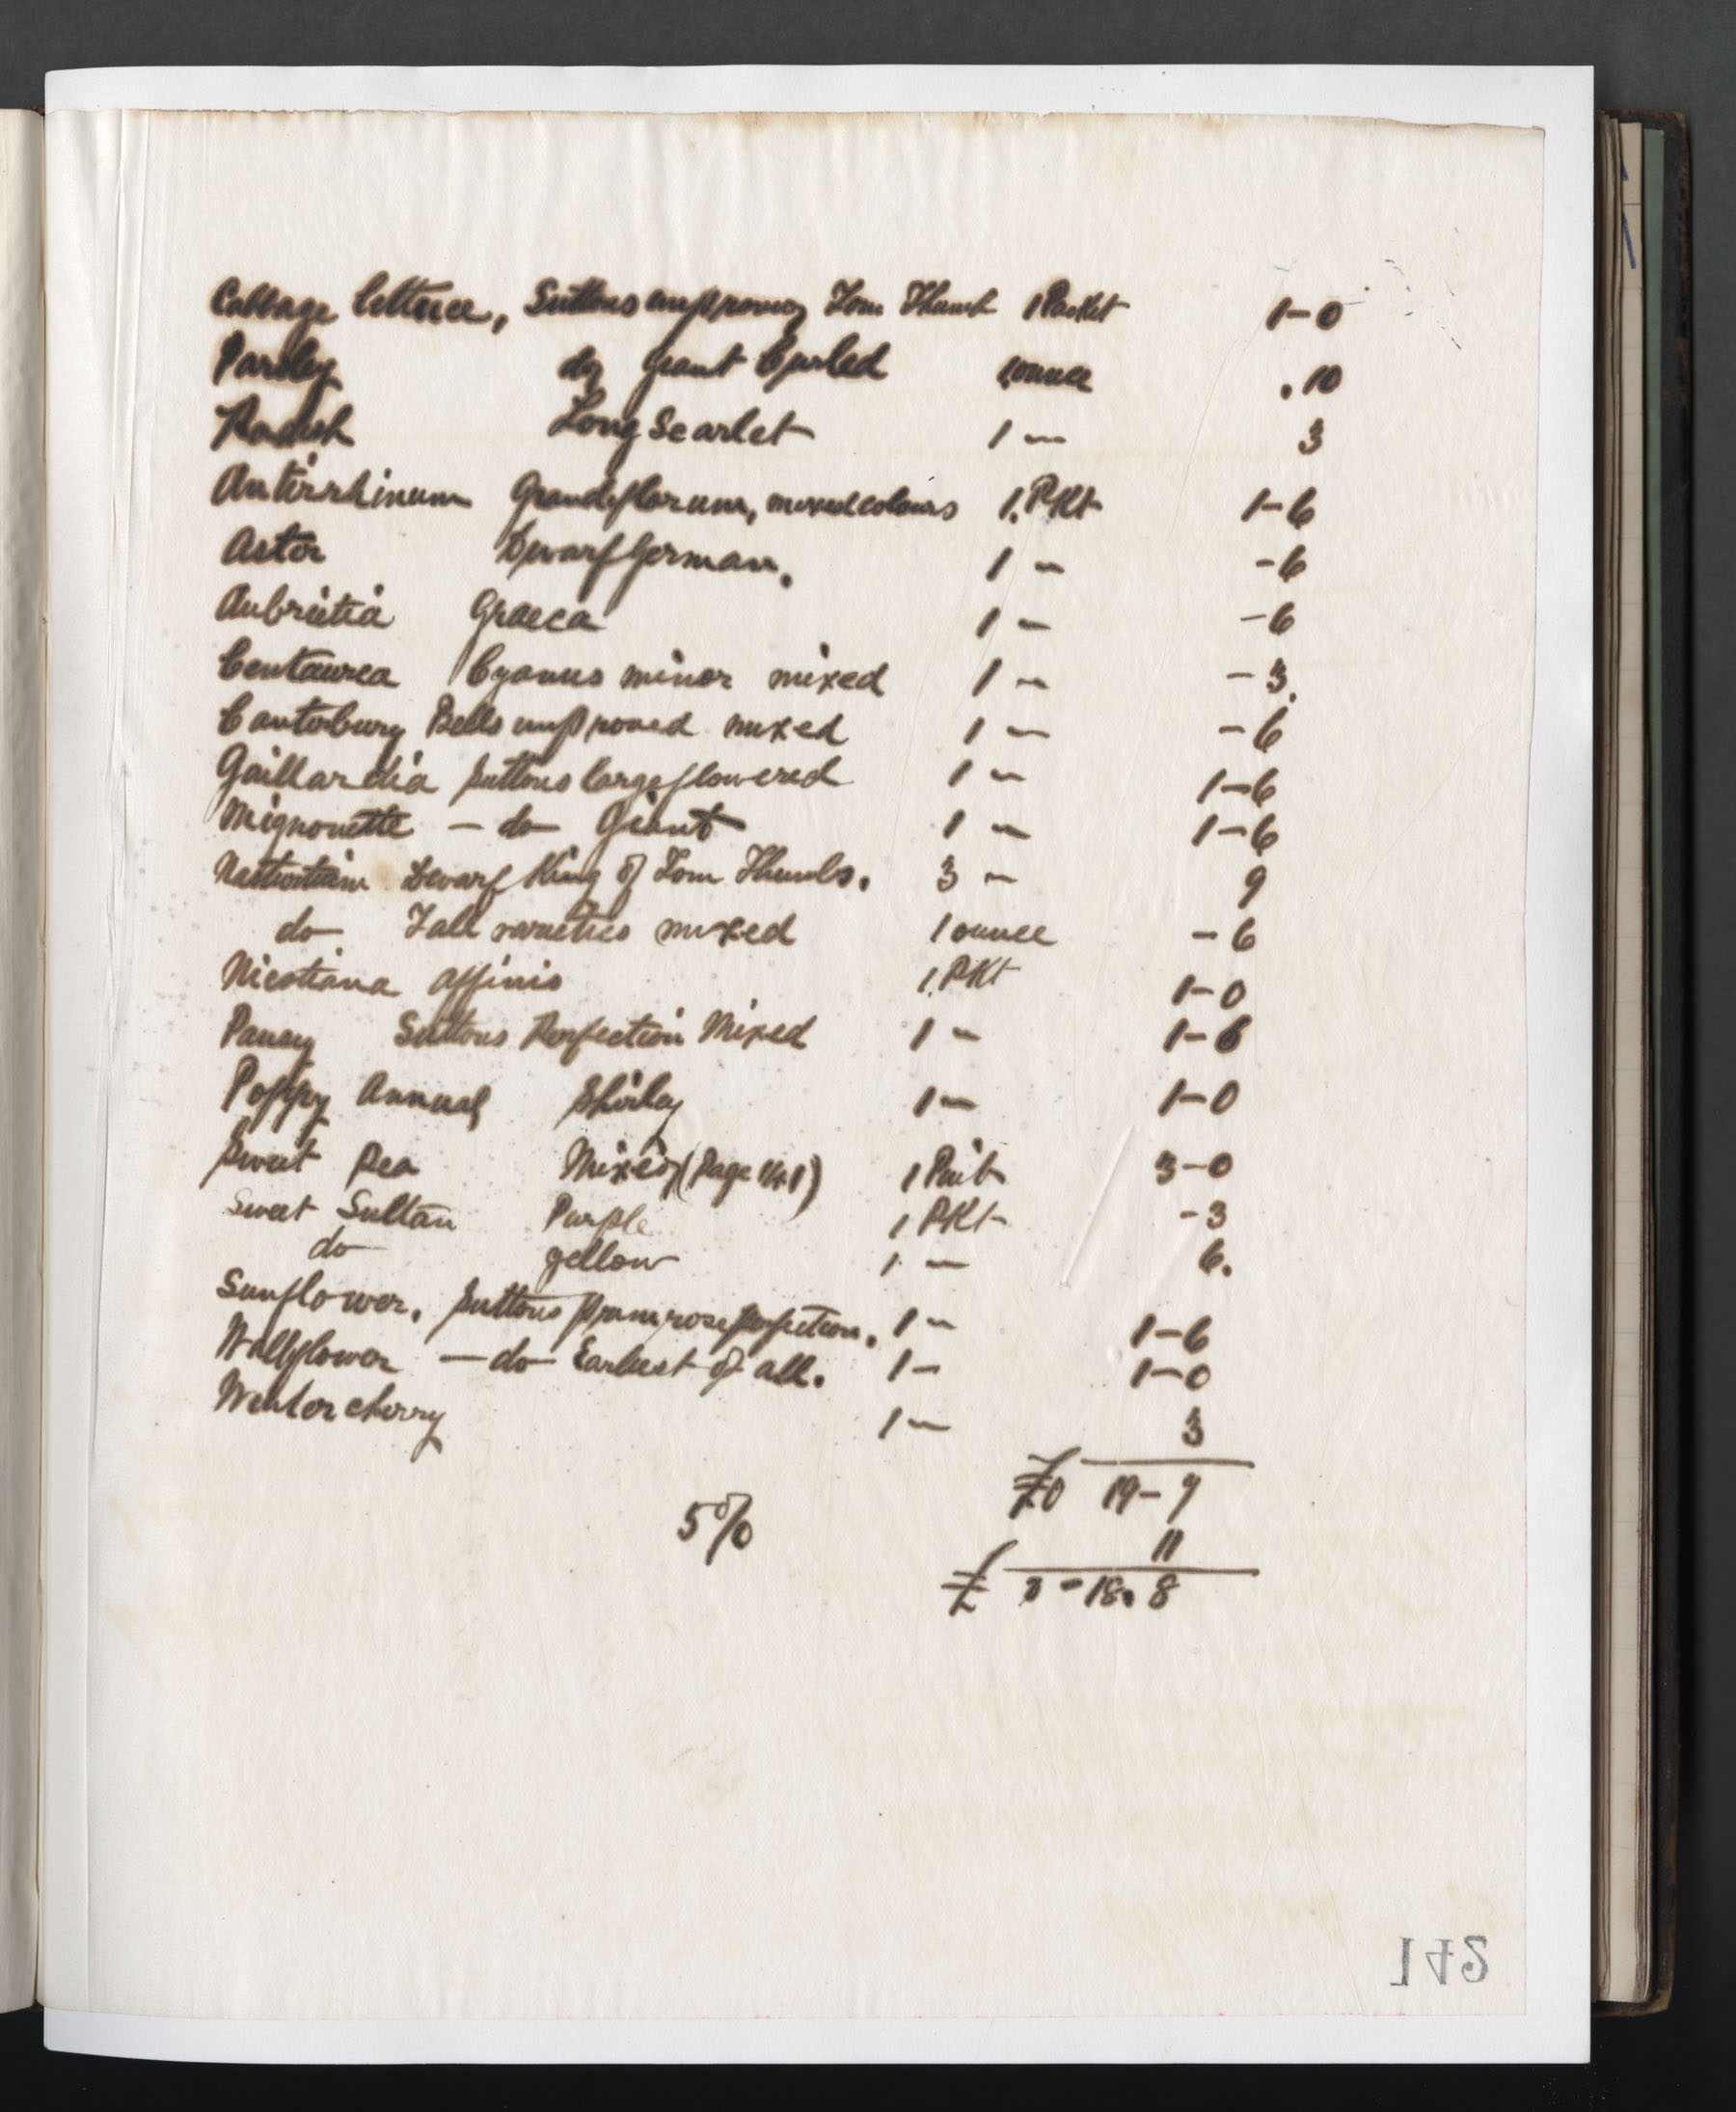 Cabbage lettuce, Suttons improved Tom Thumb 1 Packet 1-0
Parsley do Giant Curled 1 ounce .10
Radish Long Scarlet 1 — 3
Antirrhinum Grandiflorum, mixed colours 1. PKt 1-6
Aster Dwarf German. 1 — -6
Aubrietia Graeca 1 — -6
Centaurea Cyanus minor mixed 1 — -3.
Canterbury Bells improved mixed 1 — -6
Gaillardia Suttons large flowered 1 — 1-6
Mignonette — do Giant 1 — 1-6
Nasturtium Dwarf King of Tom Thumbs. 3 — 9
do Tall varieties mixed 1 ounce -6
Nicotiana affinis 1. PKt 1-0
Pansy Suttons Perfection Mixed 1 — 1-6
Poppy Annual Shirley 1 — 1-0
Sweet Pea Mixed (Page 141) 1 Paib 3-0
Sweet Sultan Purple 1 PKt -3
do yellow 1 — 6.
Sunflower. Suttons Primrose perfection. 1 — 1-6
Wallflower — do Earliest of all. 1 — 1-0
Winter cherry 1 — 3
£0 19-7
5% 11
£ 0-18.8
142